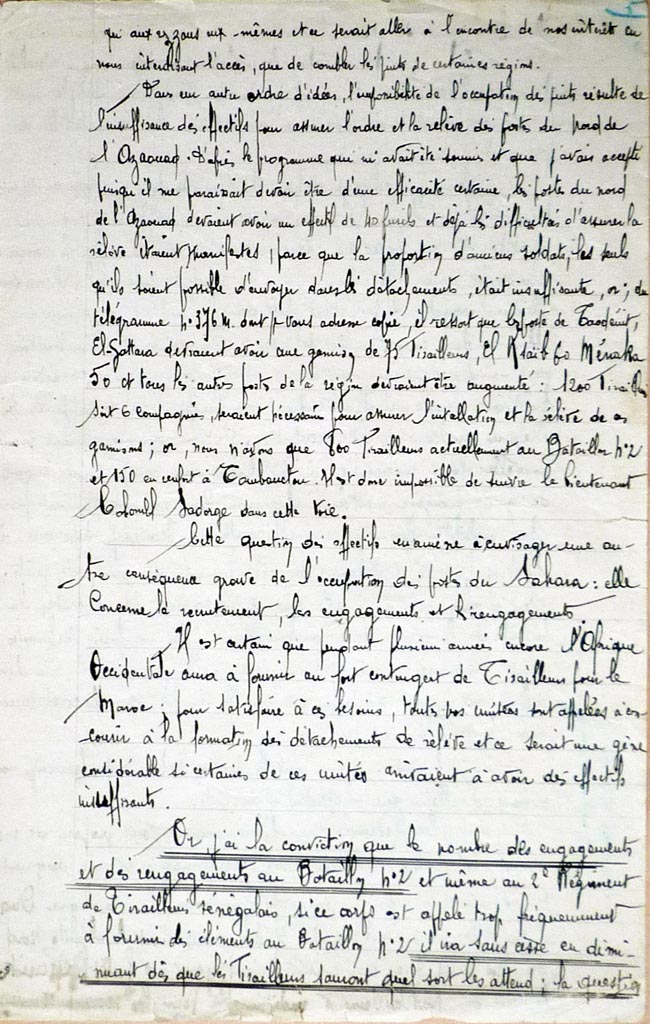 qu'aux rezzous eux-mêmes et ce serait aller à l'encontre de nos intérêts en
nous interdisant l'accès, que de combler les puits de certaines régions.
Dans un autre ordre d'idées, l'impossibilité de l'occupation des puits résulte de
l'insuffisance des effectifs pour assurer l'ordre et la relève des postes du nord de
l'Azaouad. D'après le programme qui m'avait été soumis et que j'avais accepté
puisqu'il me paraissait devoir être d'une efficacité certaine, les postes du nord
de l'Azaouad devaient avoir un effectif de 40 fusils et déjà les difficultés d'assurer la
relève étaient manifestes, parce que la proportion d'anciens soldats, les seuls
qu'ils soient possible d'envoyer dans les détachements, était insuffisante, or; du
télégramme n° 376 M. dont je vous adresse copie, il ressort que les postes de Taodénit,
El-Gattara devraient avoir une garnison de 75 Tirailleurs, El Ksaib 60 Ménaka
50 et tous les autres postes de la région devraient être augmenté : 1200 Tirailleurs
soit 6 compagnies, seraient nécessaires pour assurer l'intallation et la relève de ces
garnisons; or, nous n'avons que 800 Tirailleurs actuellement au Bataillon n°2
et 150 en renfort à Tombouctou. Il est donc impossible de suivre le Lieutenant
Colonel Sadorge dans cette voie.
Cette question des effectifs m'amène à envisager une au-
tre conséquence grave de l'occupation des postes du Sahara : elle
concerne le recrutement, les engagements et le rengagements.
Il est certain que pendant plusieurs années encore l'Afrique
Occidentale aura à fournir un fort contingent de Tirailleurs pour le
Maroc ; pour satisfaire à ces besoins, toutes nos unités sont appelées à con-
courir à la formation des détachements de relève et ce serait une gêne
considérable si certaines de ces unités arrivaient à avoir des effectifs
insuffisants.
Or, j'ai la conviction que le nombre des engagements
et des rengagements au Bataillon n°2 et même au 2e Régiment
de Tirailleurs sénégalais, si ce corps est appelé trop fréquemment
à fournir des éléments au Bataillon n°2 il ira sans cesse en dimi-
nuant dès que les Tirailleurs sauront quel sort les attend ; la question